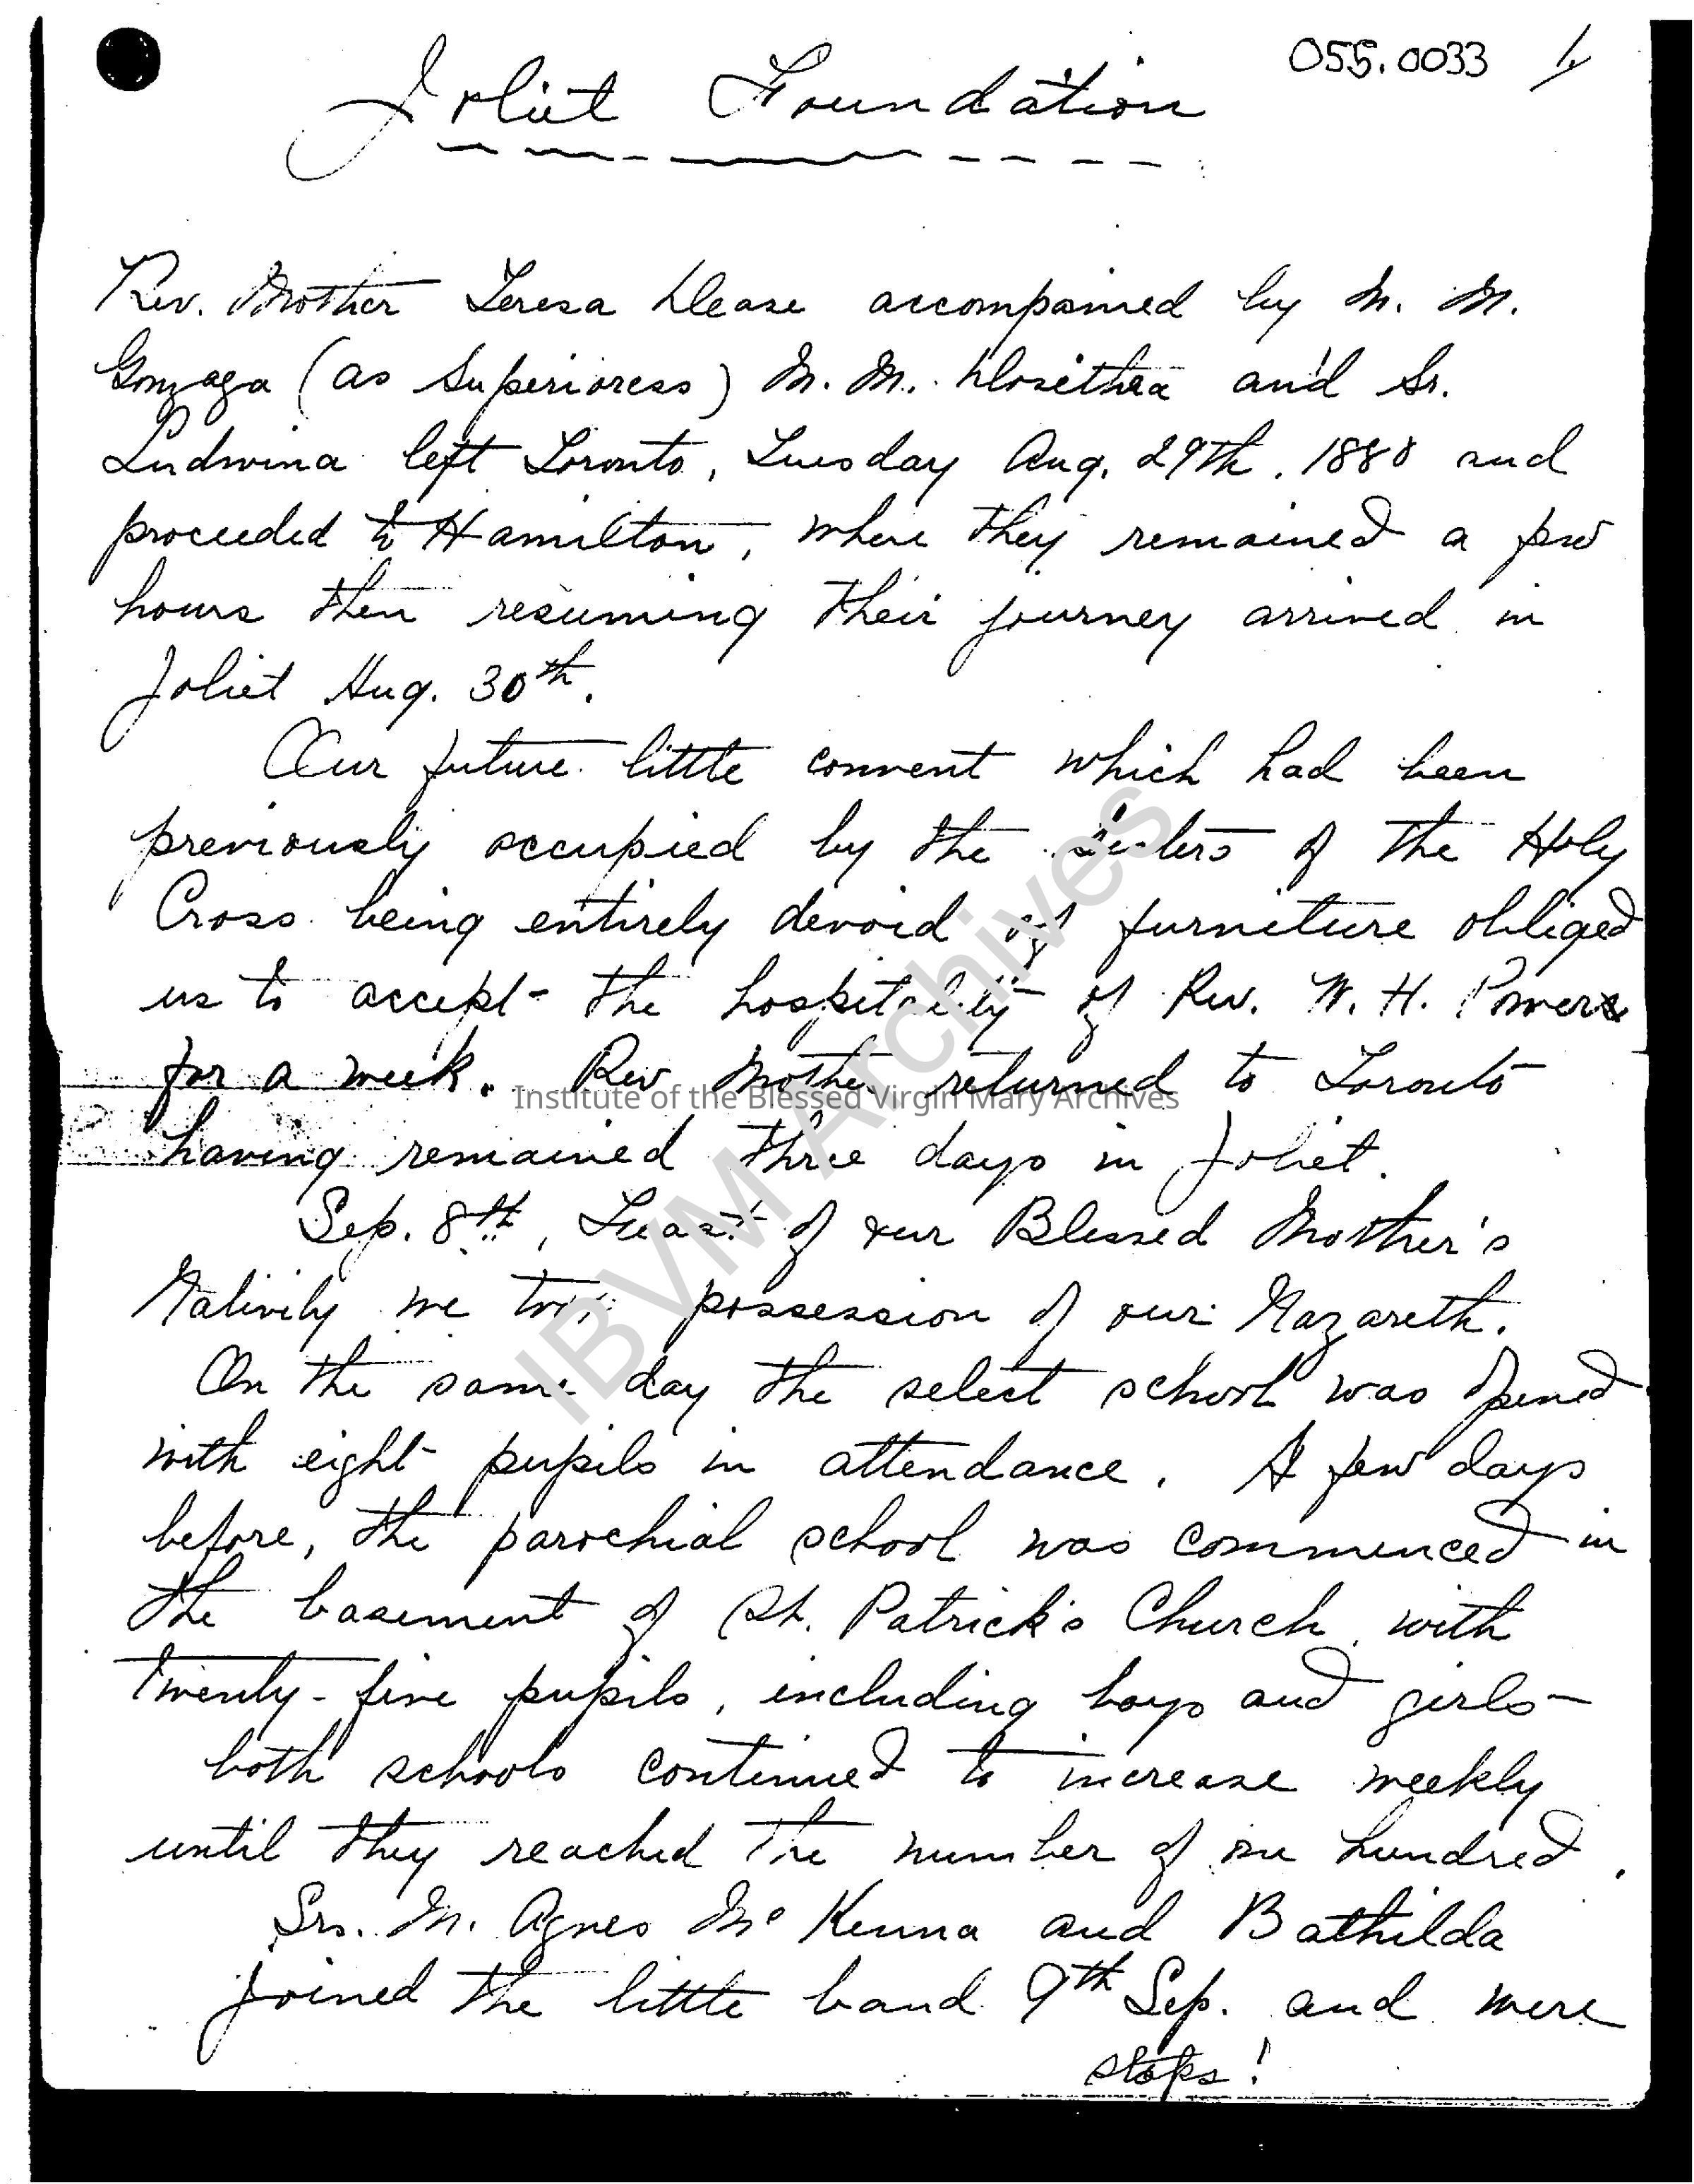 055.0033
Joliet Foundation
Rev. Mother Teresa Dease accompanied by M. M.
Gonzaga (as Superioress) M. M. Dosithea and Sr.
Ludwina left Toronto, Tuesday Aug. 29th. 1880 and
proceeded to Hamilton, where they remained a few
hours then resuming their journey arrived in
Joliet Aug. 30th.
Our future little convent which had been
previously occupied by the Sisters of the Holy
Cross being entirely devoid of furniture obliged
us to accept the hospitality of Rev. W. H. Powers
for a week. Rev Mother returned to Toronto
having remained three days in Joliet.
Sep. 8th, Feast of our Blessed Mother's
Nativity we took possession of our Nazareth.
On the same day the select school was opened
with eight pupils in attendance. A few days
before, the parochial school was commenced in
the basement of St. Patrick's Church with
twenty-five pupils, including boys and girls -
both schools continued to increase weekly
until they reached the number of one hundred.
Srs. M. Agnes Mc Kenna and Bathilda
joined the little band 9th Sep. and were
stops!
IBVM Archives
Institute of the Blessed Virgin Mary Archives